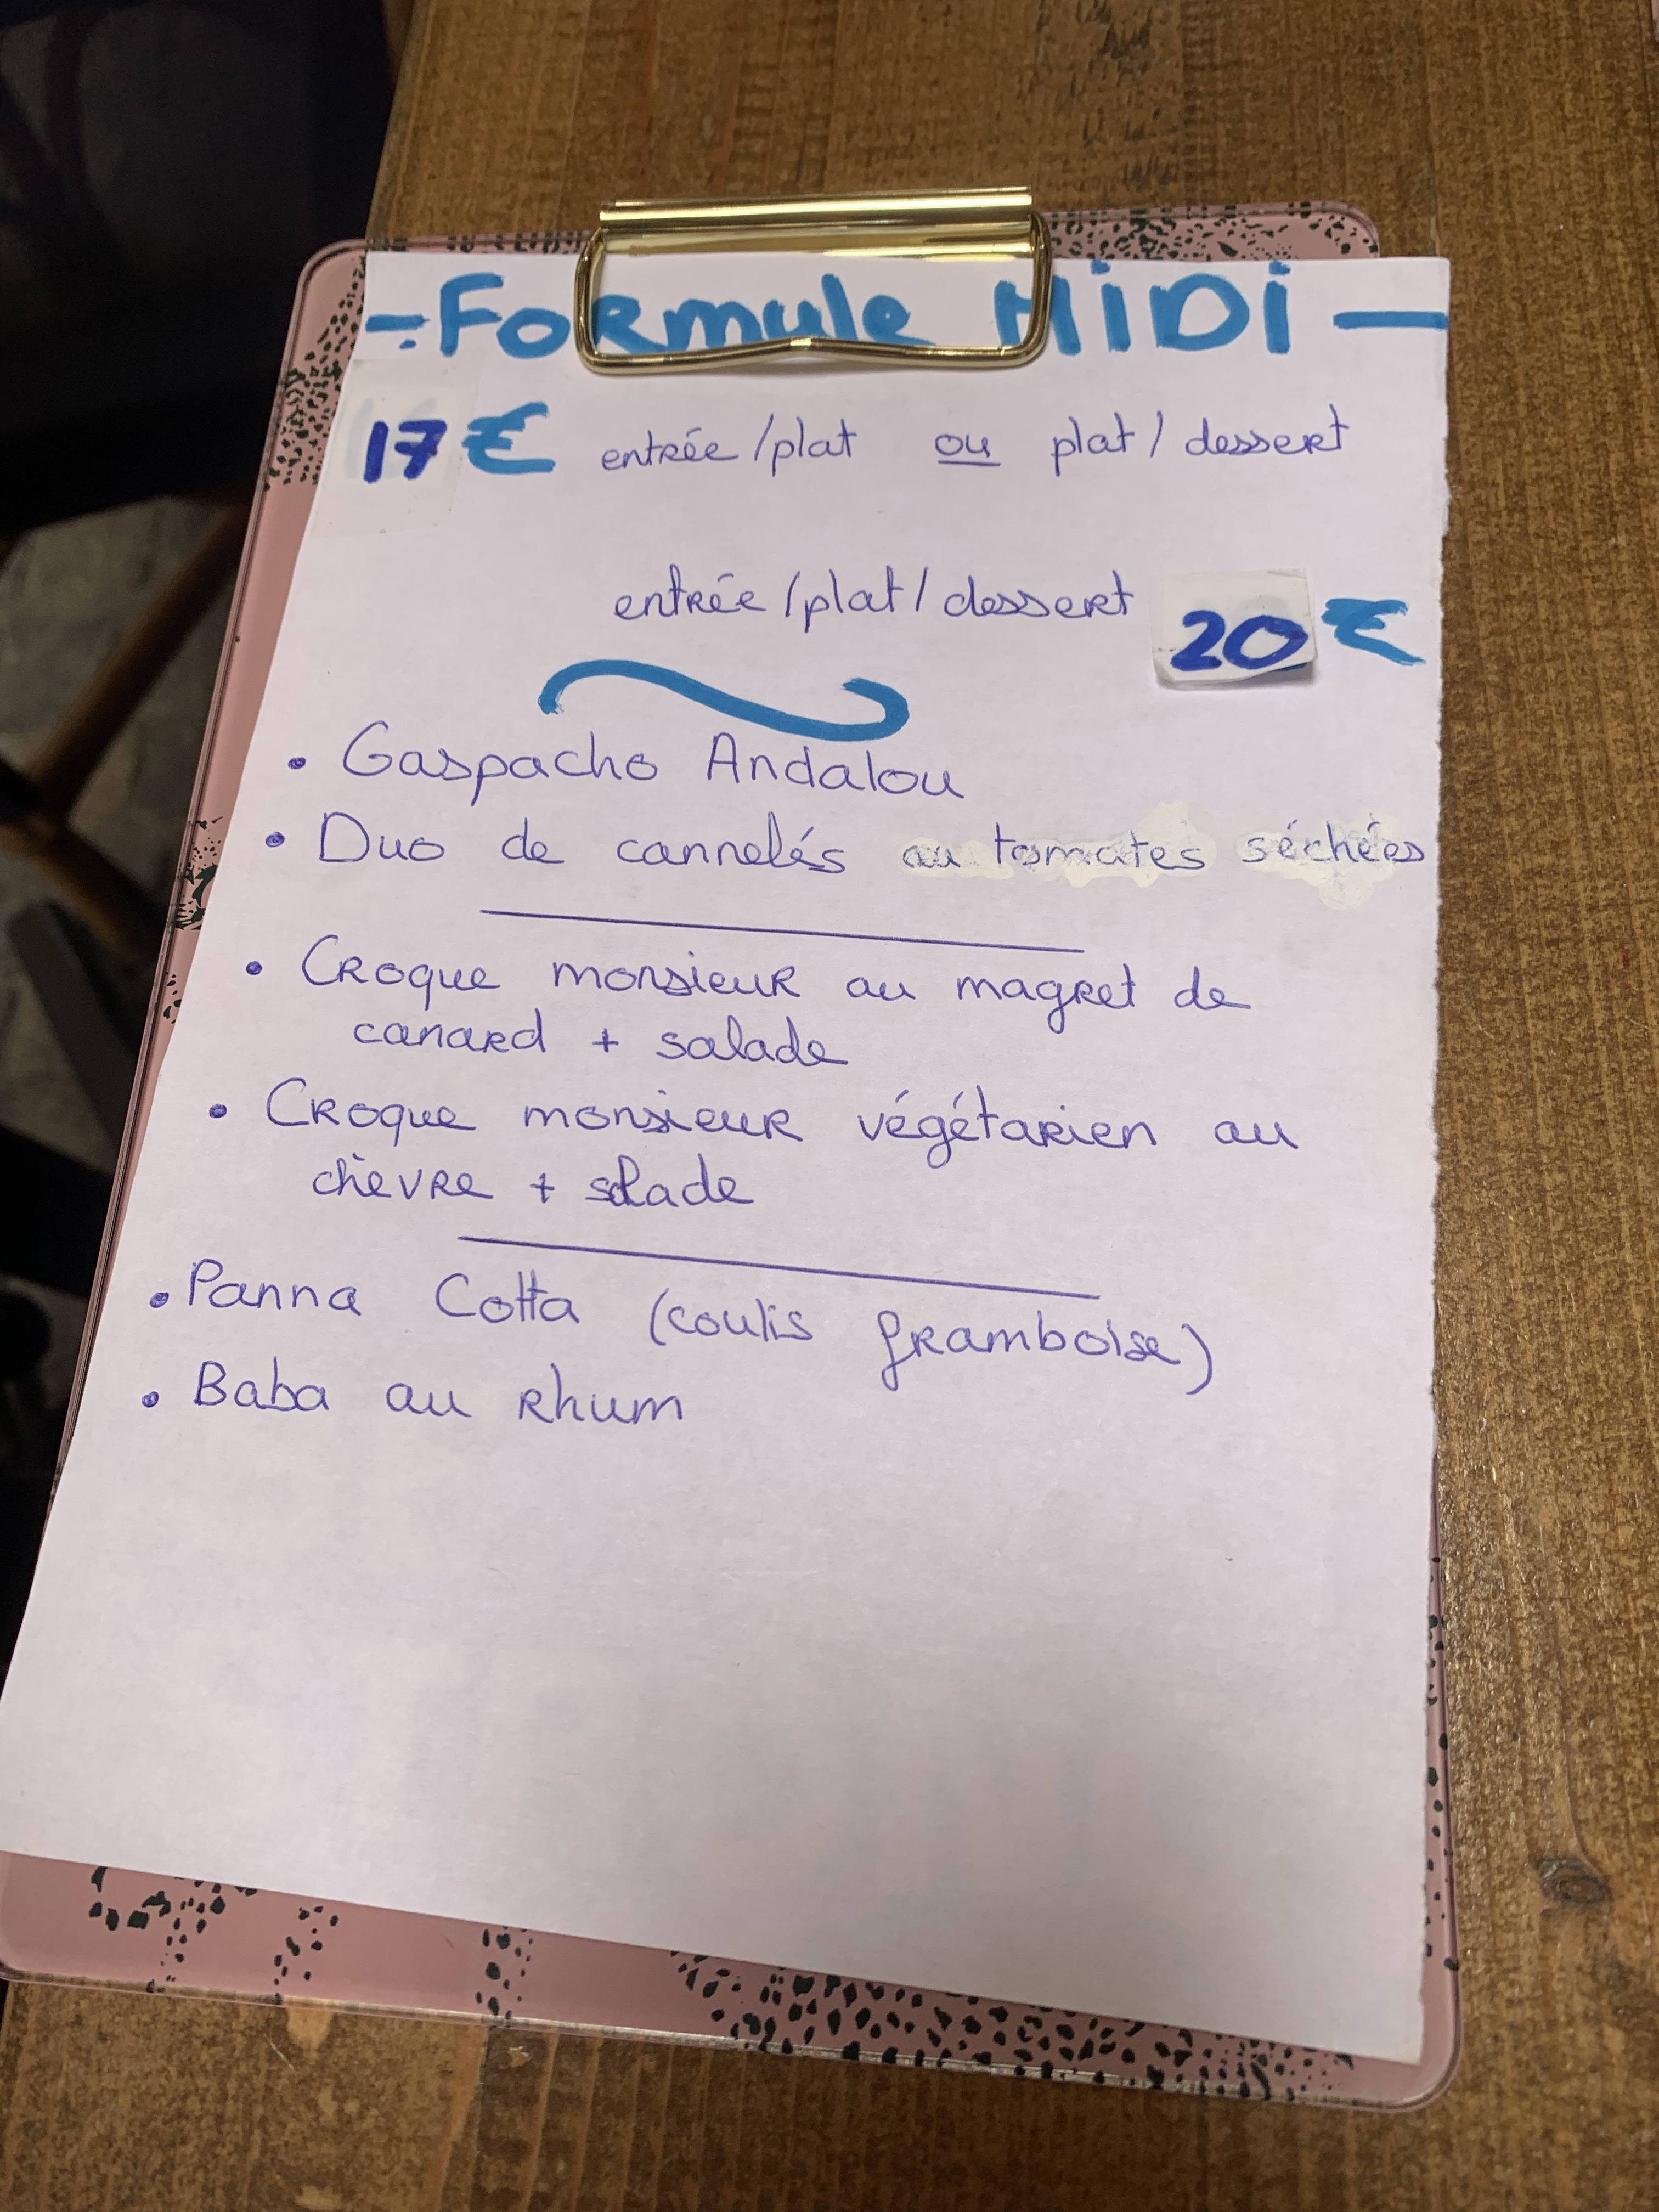 - Formule MiDi -
17 € entrée/plat ou plat/dessert
entrée/plat/dessert 20 €
• Gaspacho Andalou
• Duo de cannelés au tomates séchées
• Croque monsieur au magret de
canard + salade
• Croque monsieur végétarien au
chèvre + salade
• Panna Cotta (coulis framboise)
• Baba au rhum